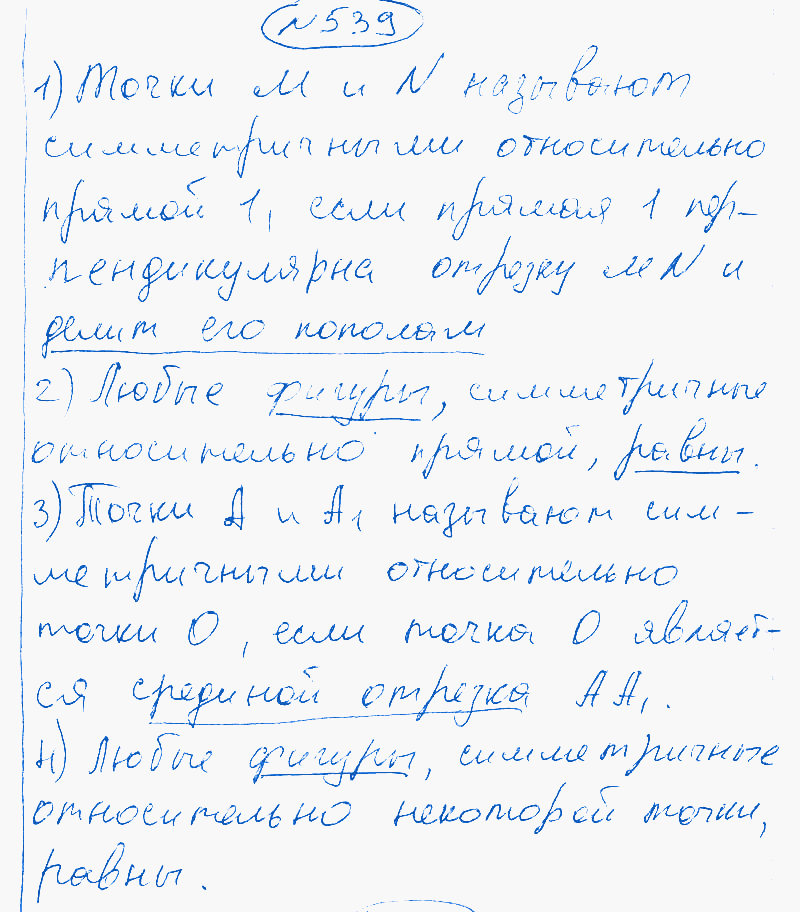 №539
1) Точки M и N называют
симметричными относительно
прямой 1, если прямая 1 пер-
пендикулярна отрезку MN и
делит его пополам
2) Любые фигуры, симметричные
относительно прямой, равны.
3) Точки A и A1 называют сим-
метричными относительно
точки O, если точка O являет-
ся срединой отрезка AA1.
4) Любые фигуры, симметричные
относительно некоторой точки,
равны.